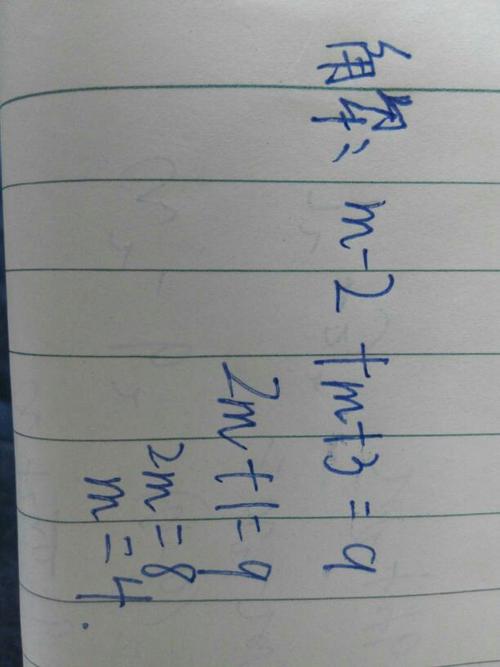 解: m-2+m+3=9
2m+1=9
2m=8
m=4.